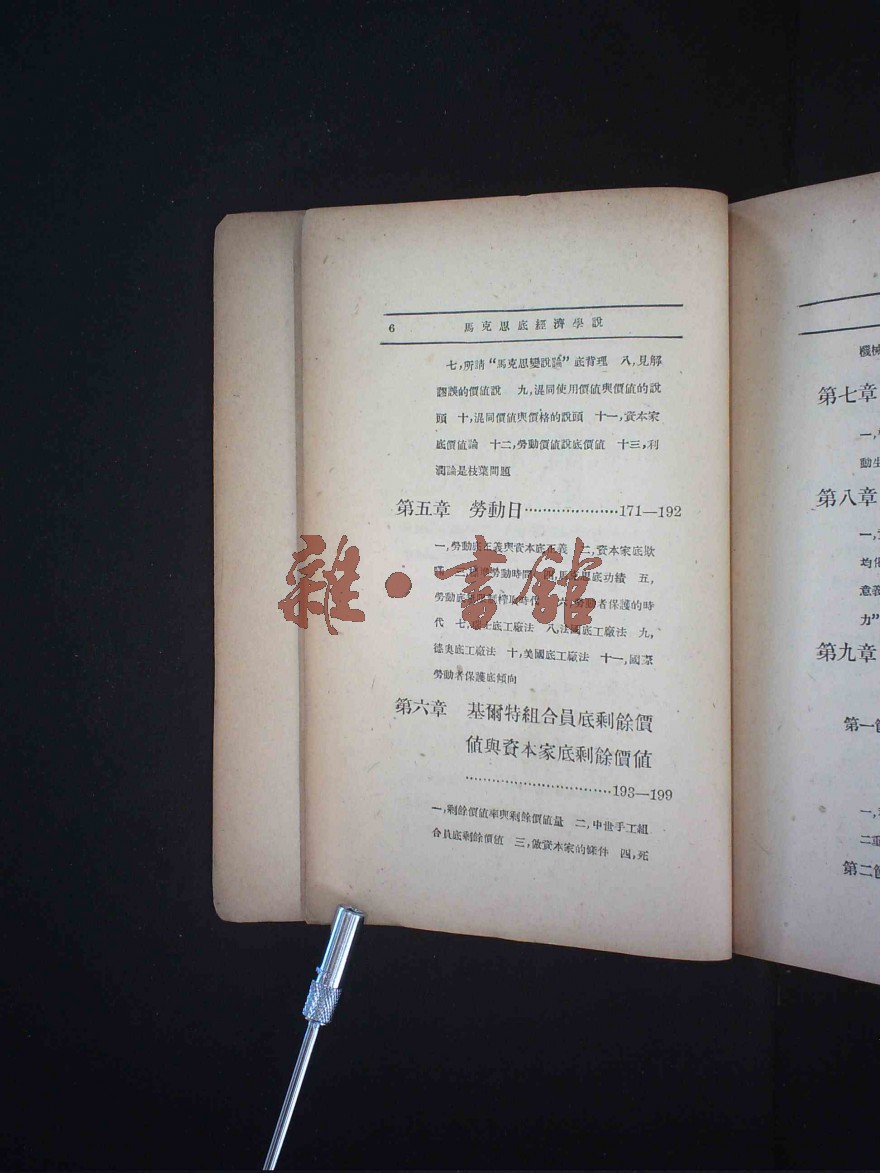 6 馬克思底經濟學說
七,所謂“馬克思變說論”底背理 八,見解
謬誤的價值說 九,混同使用價值與價值的說
頭 十,混同價值與價格的說頭 十一,資本家
底價值論 十二,勞動價值說底價值 十三,利
潤論是枝葉問題
第五章 勞動日····················171—192
一,勞動底正義與資本底正義 二,資本家底欺
勞動時間 四,馬克思底功績 五,
勞動底 時代 六,勞動者保護的時
代 七,瑞士底工廠法 八,法國底工廠法 九,
德奧底工廠法 十,美國底工廠法 十一,國際
勞動者保護底傾向
第六章 基爾特組合員底剩餘價
值與資本家底剩餘價值
······························193—199
一,剩餘價值率與剩餘價值量 二,中世手工組
合員底剩餘價值 三,做資本家的條件 四,死
雜·書館
機械
第七章
一,
動生
第八章
一,
均
意義
力”
第九章
第一
一,
二重
第二